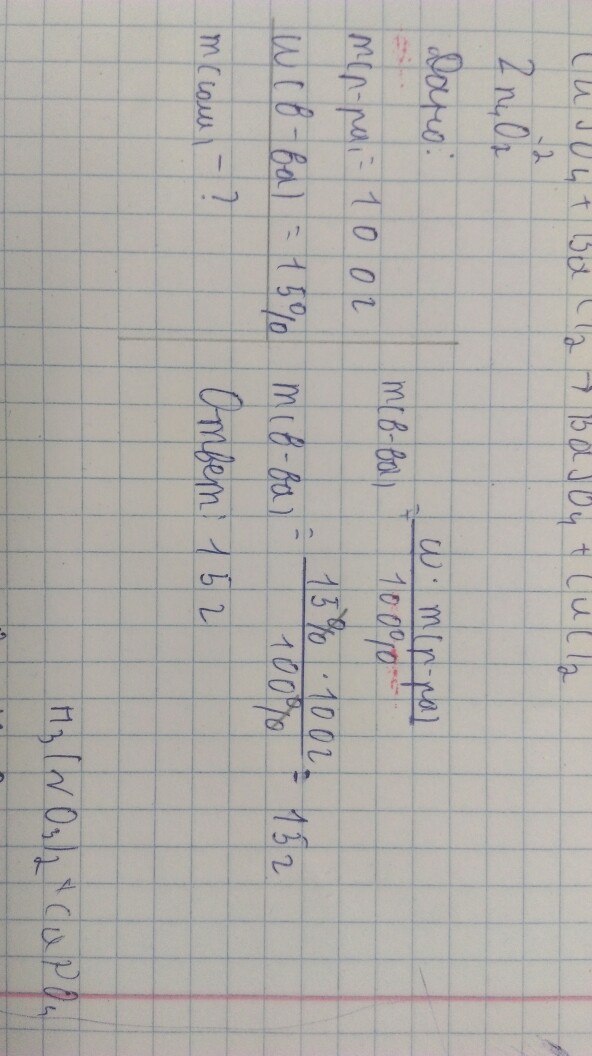 CuSO4 + BaCl2 → BaSO4 + CuCl2
-2
Zn4O2
Дано:
m(р-ра) = 100г
w(в-ва) = 15%
m(соли) - ?
m(в-ва) = w · m(р-ра)
100%
m(в-ва) = 15% · 100г = 15г
100%
Ответ: 15г
H3(NO3)2 + CuPO4